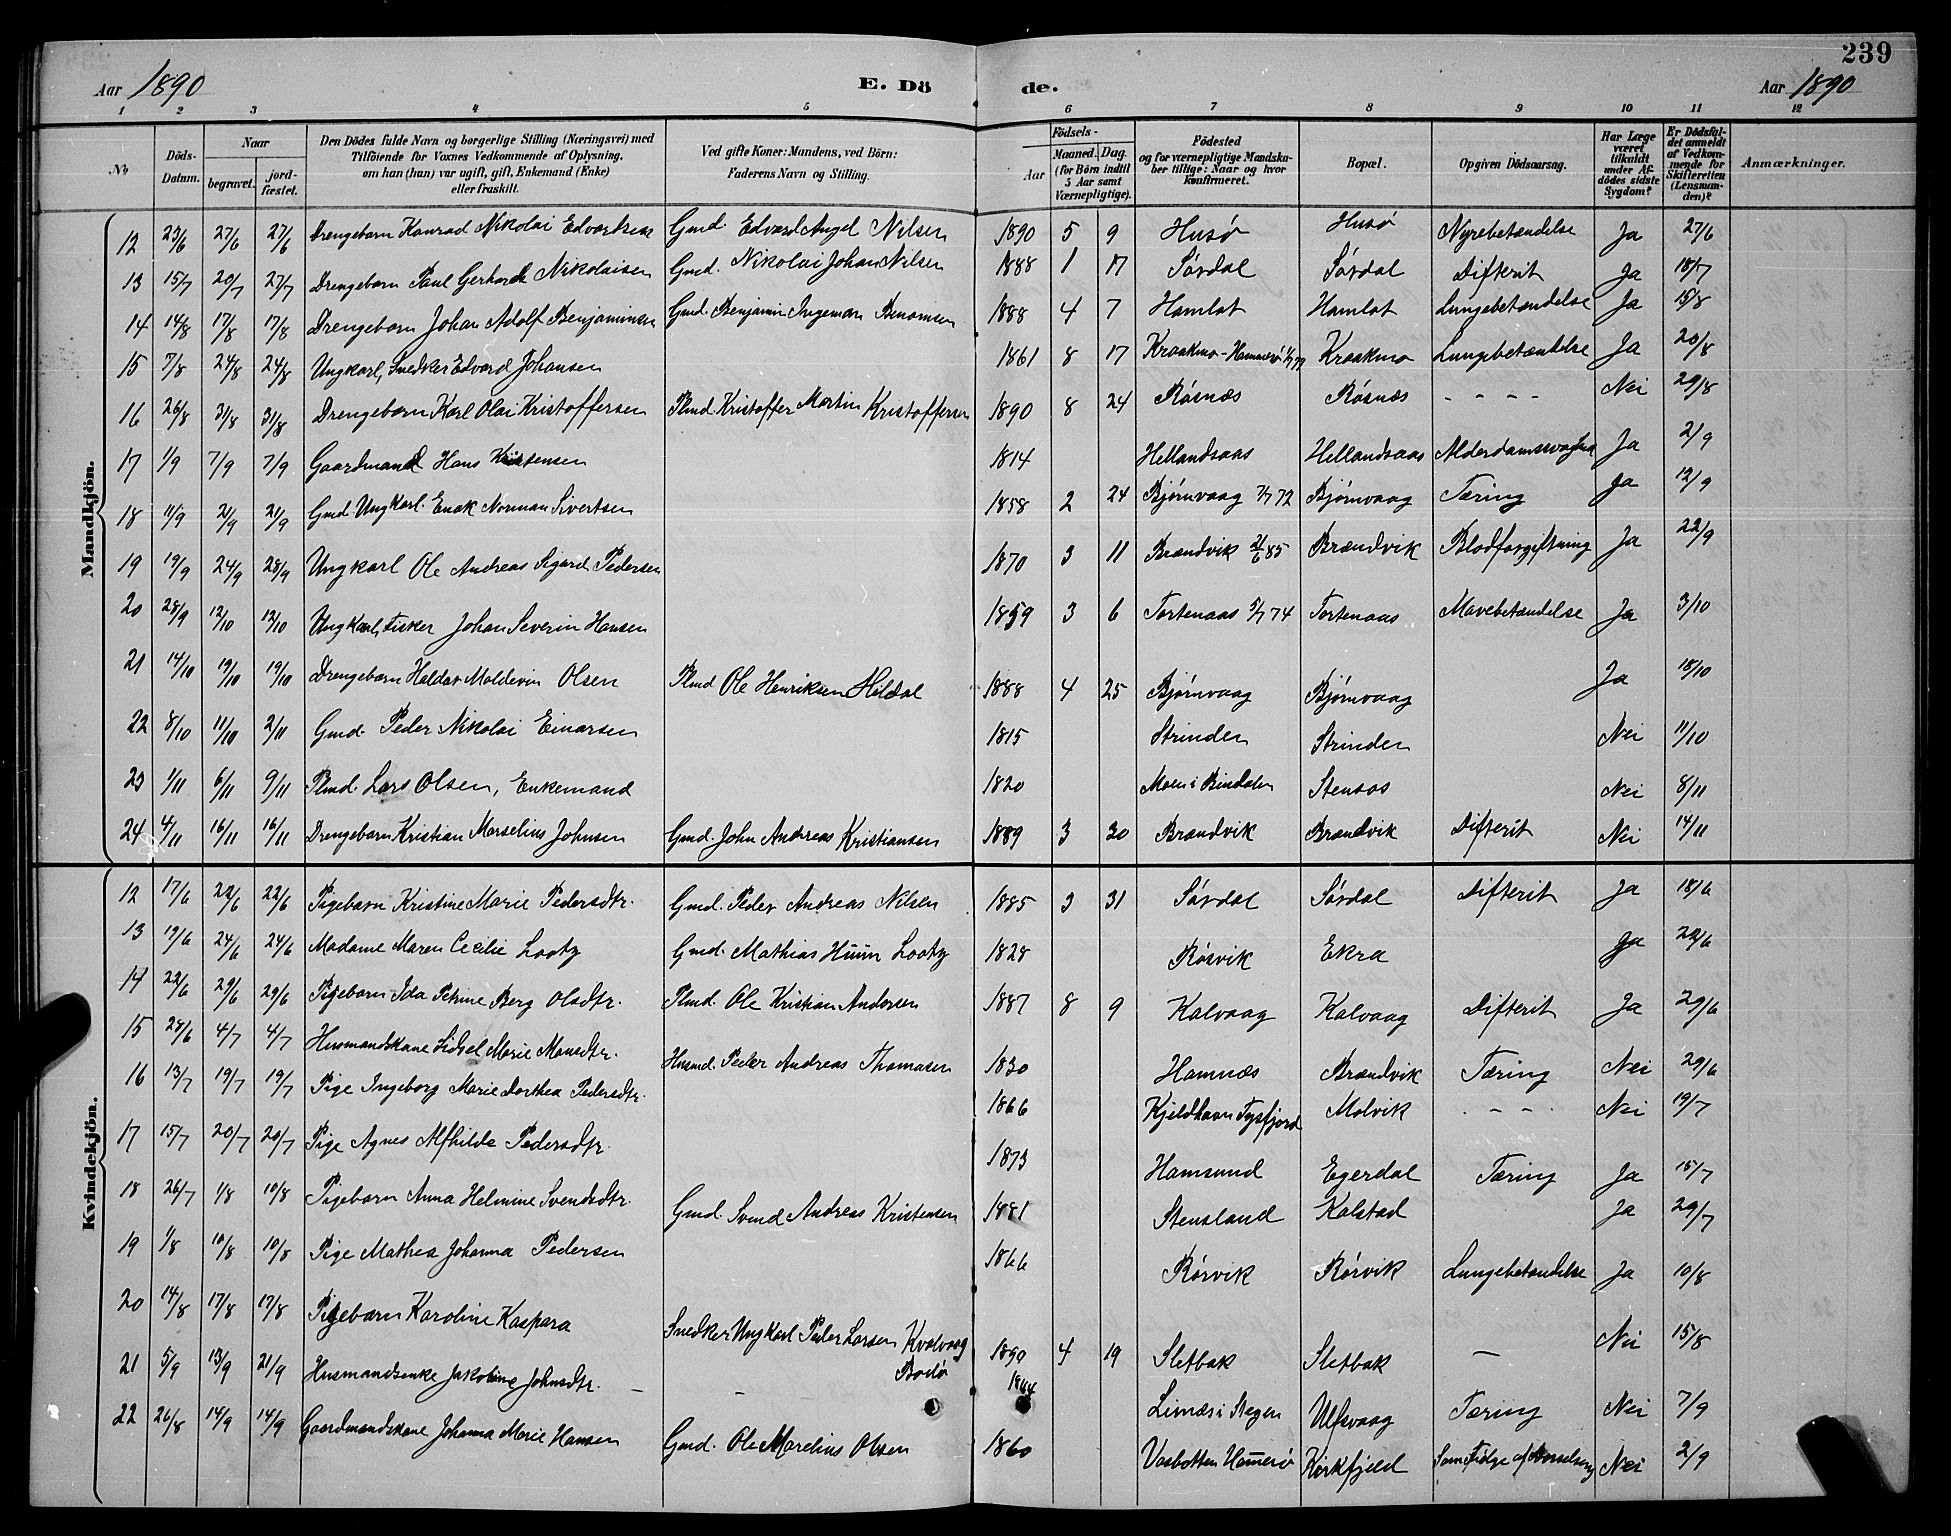 239
Aar 1890 E. Dö de. Aar 1890
1 2 3 4 5 6 7 8 9 10 11 12
No
Döds-Datum.
Naar
begravet.
jord-fæstet.
Den Dödes fulde Navn og borgerlige Stilling (Næringsvei) med
Tilföiende for Voxnes Vedkommende af Oplysning,
om han (hun) var ugift, gift, Enkemand (Enke)
eller fraskilt.
Ved gifte Koner: Mandens, ved Börn:
Faderens Navn og Stilling.
Födsels-
Aar
Maaned. Dag.
(for Börn indtil
5 Aar samt
Værnepligtige).
Födested
og for værnepligtige Mandska-
ber tillige: Naar og hvor
konfirmeret.
Bopæl.
Opgiven Dödsaarsag.
Har Læge
været
tilkaldt
under Af-
dödes sidste
Sygdom?
Er Dödsfal-
det anmeldt
af Vedkom-
mende for
Skifteretten
(Lensman-
den)?
Anmærkninger.
Mandkjön.
12 23/6 27/6 27/6 Drengebarn Konrad Nikolai Edvardsen Gmd. Edvard Angel Nilsen 1890 5 9 Husø Husø Nyrebetændelse Ja 27/6
13 15/7 20/7 27/7 Drengebarn Paul Gerhard Nikolaisen Gmd. Nikolai Johan Nilsen 1888 1 17 Sørdal Sørdal Difterit Ja 18/7
14 14/8 17/8 17/8 Drengebarn Johan Adolf Benjaminsen Gmd. Benjamin Ingeman Benonisen 1888 4 7 Hamlot Hamlot Lungebetændelse Ja 15/8
15 7/8 24/8 24/8 Ungkarl, Snedker Edvard Johansen 1861 8 17 Kraakmo - Hammerø Kraakmo Lungebetændelse Ja 20/8
16 26/8 31/8 31/8 Drengebarn Karl Olai Kristoffersen Plmd. Kristoffer Martin Kristoffersen 1890 8 24 Røsnæs Røsnæs - - - - Nei 29/8
17 1/9 7/9 7/9 Gaardmand Hans Kristensen 1814 Hellandsaas Hellandsaas Alderdomssvaghed Ja 2/9
18 11/9 21/9 21/9 Gmd Ungkarl. Enok Norman Sivertsen 1858 2 24 Bjørnvaag 7/7 72 Bjørnvaag Tæring Ja 12/9
19 19/9 24/9 28/9 Ungkarl Ole Andreas Sigard Pedersen 1870 3 11 Brændvik 21/6 85 Brændvik Blodforgiftning Ja 22/9
20 28/9 12/10 12/10 Ungkarl, Fisker Johan Severin Hansen 1859 3 6 Tortenaas 5/7 74 Tortenaas Mavebetændelse Ja 3/10
21 14/10 19/10 19/10 Drengebarn Haldor Moldevin Olsen Plmd Ole Henriksen Hildal 1888 4 25 Bjørnvaag Bjørnvaag Ja 18/10
22 8/10 11/10 2/11 Gmd. Peder Nikolai Einarsen 1815 Strinden Strinden Nei 11/10
23 1/11 6/11 9/11 Plmd. Lars Olsen, Enkemand 1820 Moen i Bindalen Stensos Nei 8/11
24 4/11 16/11 16/11 Drengebarn Kristian Marselius Johnsen Gmd. John Andreas Kristiansen 1889 3 30 Brændvik Brændvik Difterit Nei 14/11
Kvindekjön.
12 17/6 22/6 22/6 Pigebarn Kristine Marie Pedersdtr. Gmd. Peder Andreas Nilsen 1885 3 31 Sørdal Sørdal Difterit Ja 18/6
13 19/6 24/6 24/6 Madame Maren Cecilie Lootz Gmd. Mathias Huun Lootz 1828 Røsvik Ekra Ja 22/6
14 22/6 29/6 29/6 Pigebarn Ida Petrine Berg Olsdtr. Plmd. Ole Kristian Andersen 1887 8 9 Kalvaag Kalvaag Difterit Ja 29/6
15 28/6 4/7 4/7 Husmandskone Sidsel Marie Monsdtr. Husmd. Peder Andreas Thomasen 1830 Hamnæs Brændvik Tæring Nei 29/6
16 13/7 19/7 19/7 Pige Ingeborg Marie Dorthea Pedersdtr. 1866 Kjeldhavn Tysfjord Molvik - - - Nei 19/7
17 15/7 20/7 20/7 Pige Agnes Alfhilde Pedersdtr. 1873 Hamsund Egerdal Tæring Ja 15/7
18 26/7 1/8 10/8 Pigebarn Anna Helmine Svendsdtr Gmd. Svend Andreas Kristensen 1881 Stensland Kalstad Ja 29/7
19 1/8 10/8 10/8 Pige Mathea Johanna Pedersen 1866 Rørvik Rørvik Lungebetændelse Ja 10/8
20 14/8 17/8 17/8 Pigebarn Karoline Kaspara Snedker Ungkarl Peder Larsen Kvalvaag Bodø 1890 4 19 Sletbak Sletbak - Nei 15/8
21 5/9 13/9 21/9 Husmandsenke Jakobine Johnsdtr. - - 1844 Limæs i Stegen Ulfsvaag Tæring Nei 7/9
22 26/8 14/9 14/9 Gaardmandskone Johanna Marie Hansen Gmd. Ole Marelius Olsen 1860 Vasbotten Hamerø Kirkfjeld Som Følge af Barselseng Nei 2/9